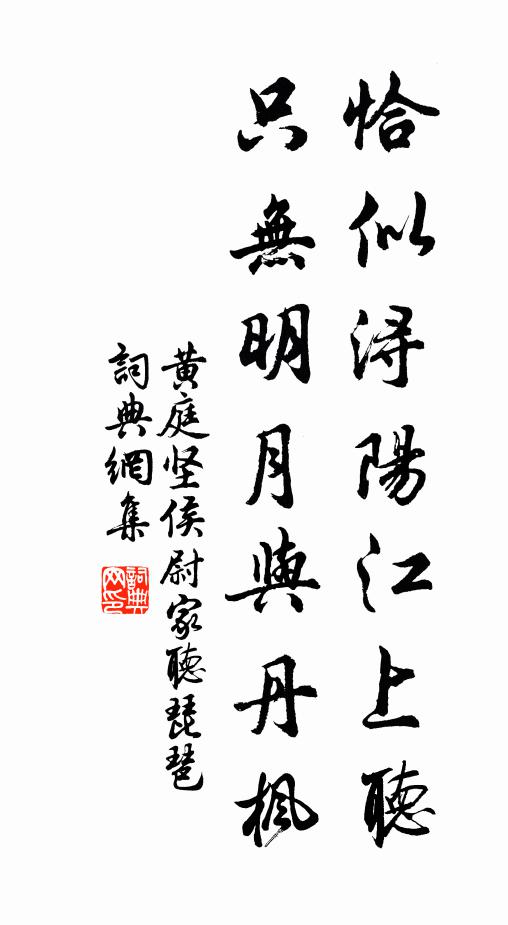 恰似浔陽江上聽
只無明月與丹楓
黄庭坚侯尉家聽琵琶
詞典網集
詞典网印